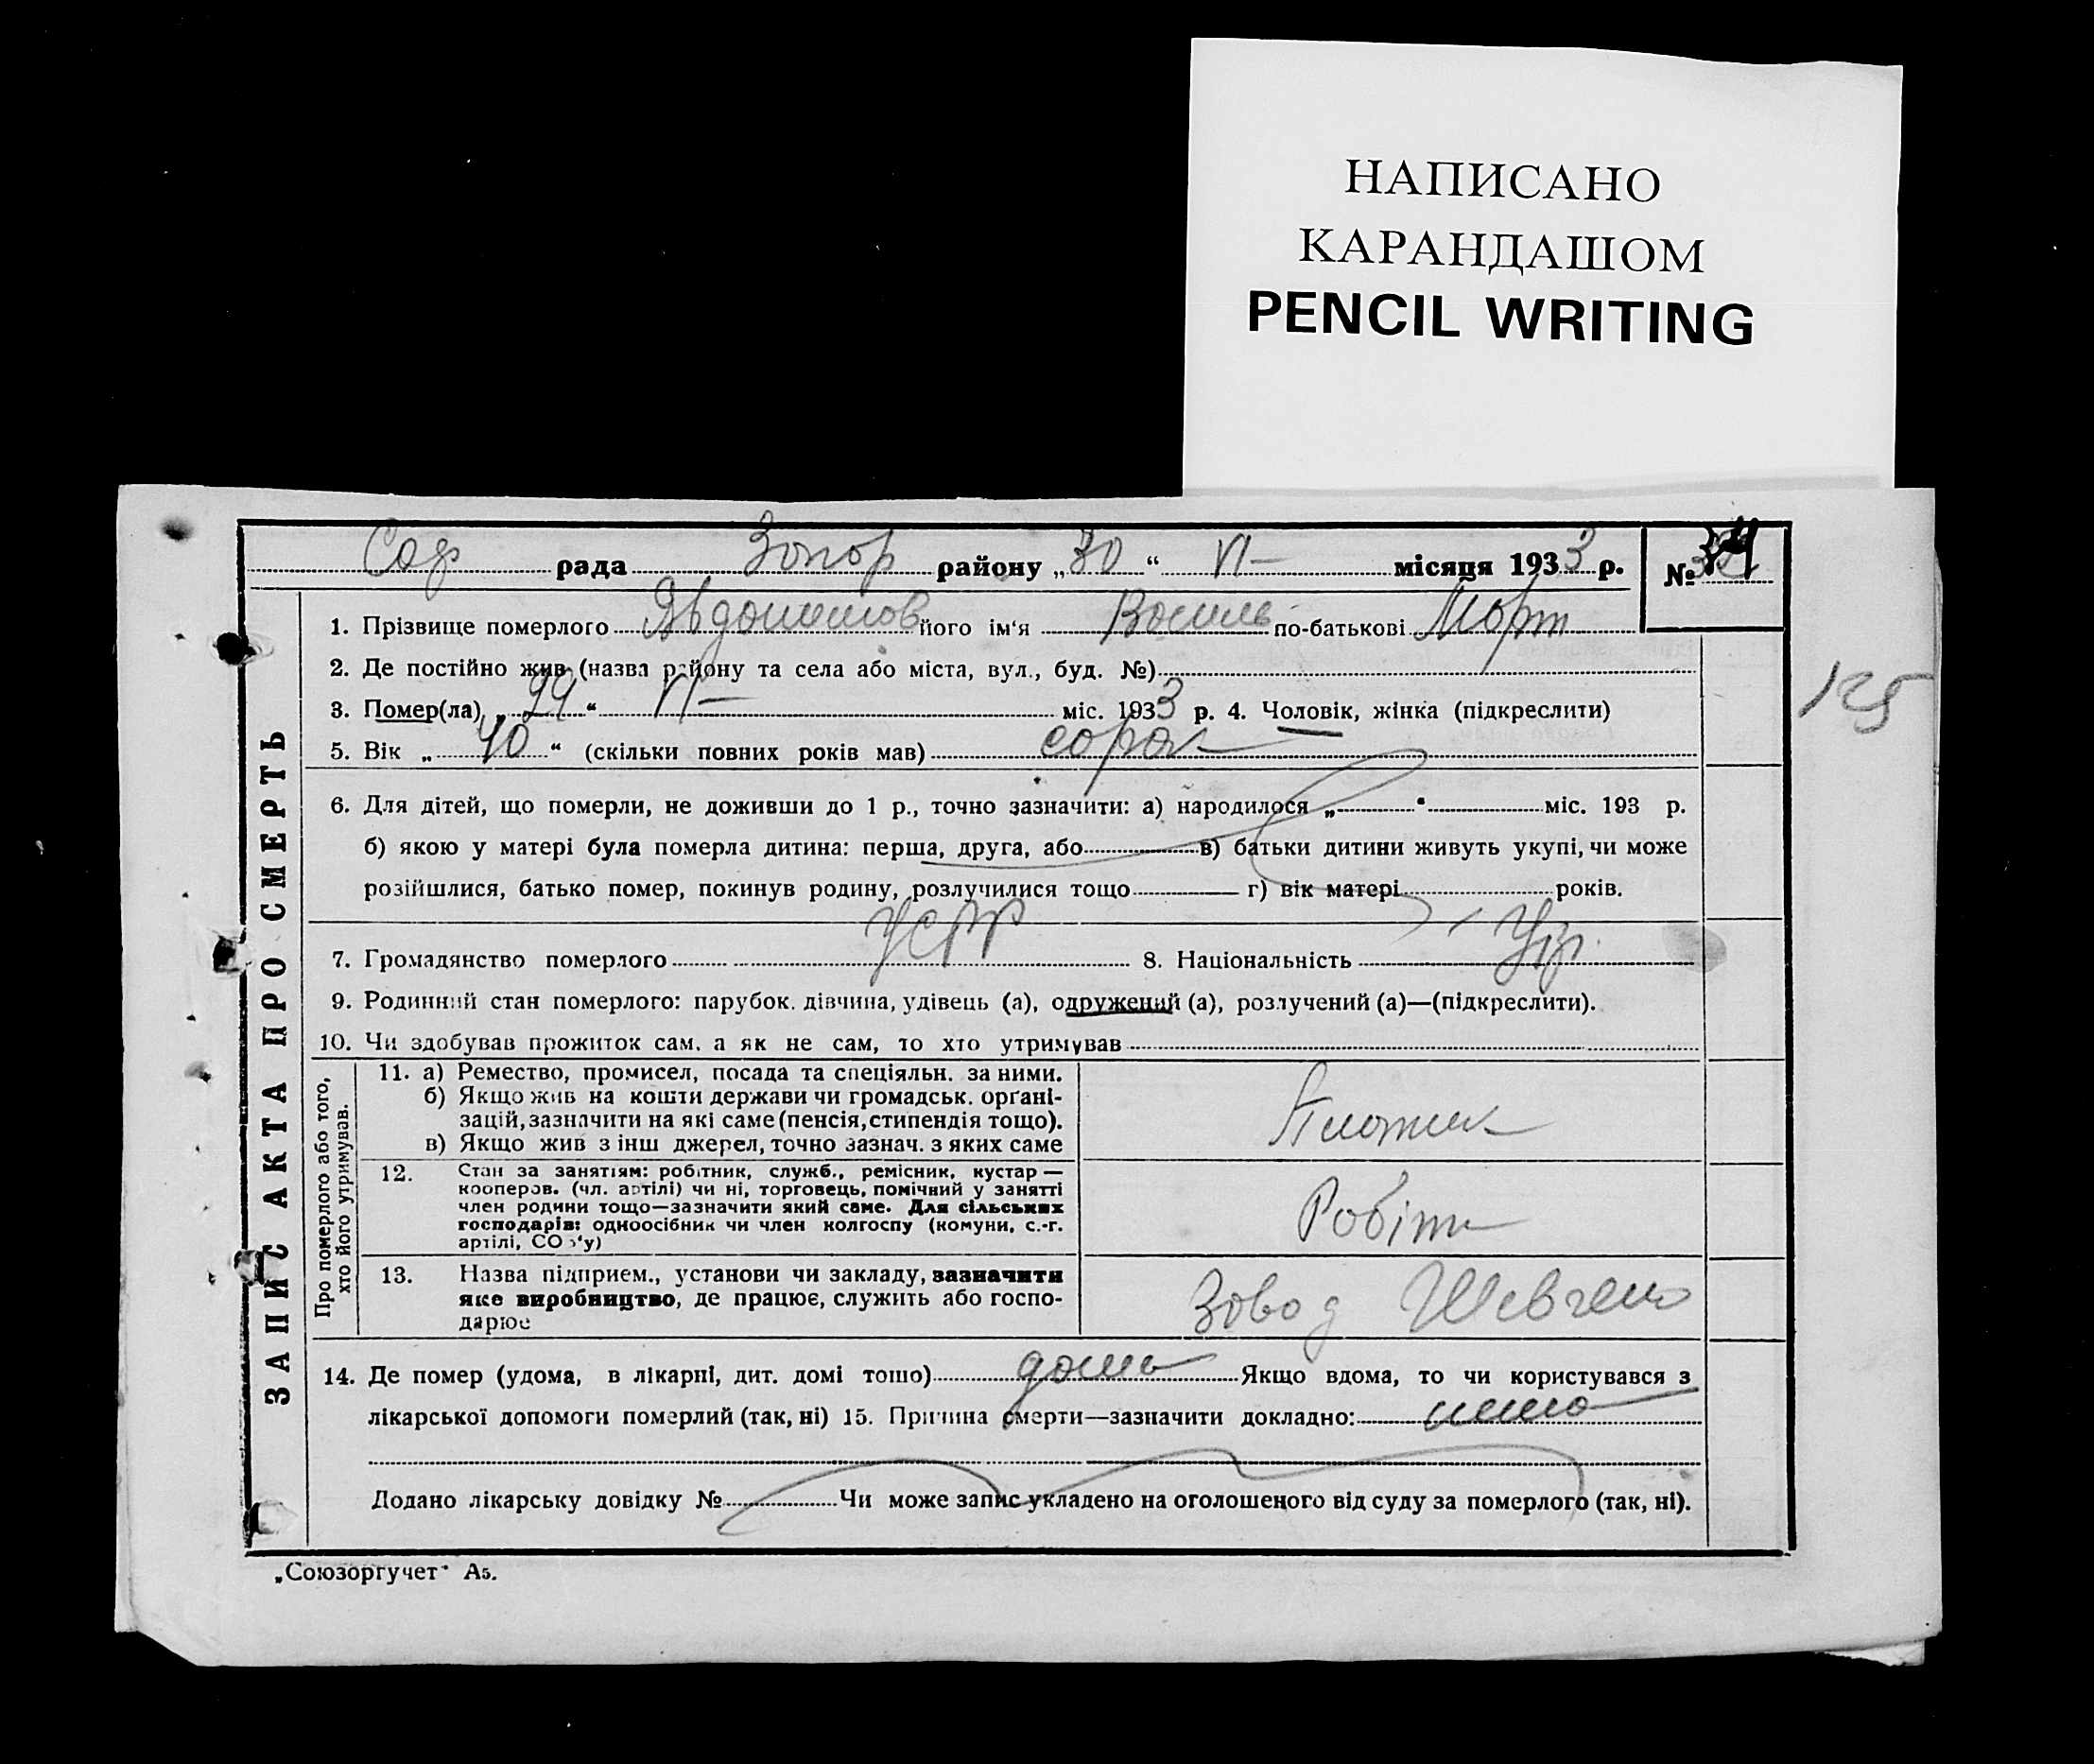 НАПИСАНО
КАРАНДАШОМ
PENCIL WRITING
Соф рада Запор району „30“ VI- місяця 1933 р. №
1. Прізвище померлого його ім'я Василь по-батькові Март
2. Де постійно жив (назва району та села або міста, вул., буд. №)
3. Помер(ла) „29“ VI- міс. 1933 р. 4. Чоловік, жінка (підкреслити)
5. Вік „40“ (скільки повних років мав) сорок
125
6. Для дітей, що померли, не доживши до 1 р., точно зазначити: а) народилося „ “ міс. 193 р.
б) якою у матері була померла дитина: перша, друга, або в) батьки дитини живуть укупі, чи може
розійшлися, батько помер, покинув родину, розлучилися тощо г) вік матері років.
7. Громадянство померлого УСРР 8. Національність Укр.
9. Родинний стан померлого: парубок. дівчина, удівець (а), одружений (а), розлучений (а)—(підкреслити).
10. Чи здобував прожиток сам, а як не сам, то хто утримував
ЗАПИС АКТА ПРО СМЕРТЬ
Про померлого або того,
хто його утримував.
11. а) Ремество, промисел, посада та спеціяльн. за ними.
б) Якщо жив на кошти держави чи громадськ. орґані-
зацій, зазначити на які саме (пенсія, стипендія тощо).
в) Якщо жив з інш джерел, точно зазнач. з яких саме
Плотник
12. Стан за заняттям: робітник, служб., ремісник, кустар —
кооперов. (чл. артілі) чи ні, торговець, помічний у занятті
член родини тощо—зазначити який саме. Для сільських
господарів: одноосібник чи член колгоспу (комуни, с.-г.
артілі, СОЗ'у)
Робітн
13. Назва підприєм., установи чи закладу, зазначити
яке виробництво, де працює, служить або госпо-
дарює
Завод Шевченко
14. Де помер (удома, в лікарні, дит. домі тощо) дома Якщо вдома, то чи користувався з
лікарської допомоги померлий (так, ні) 15. Причина смерти—зазначити докладно:
Додано лікарську довідку № Чи може запис укладено на оголошеного від суду за померлого (так, ні).
„Союзоргучет“ А5.